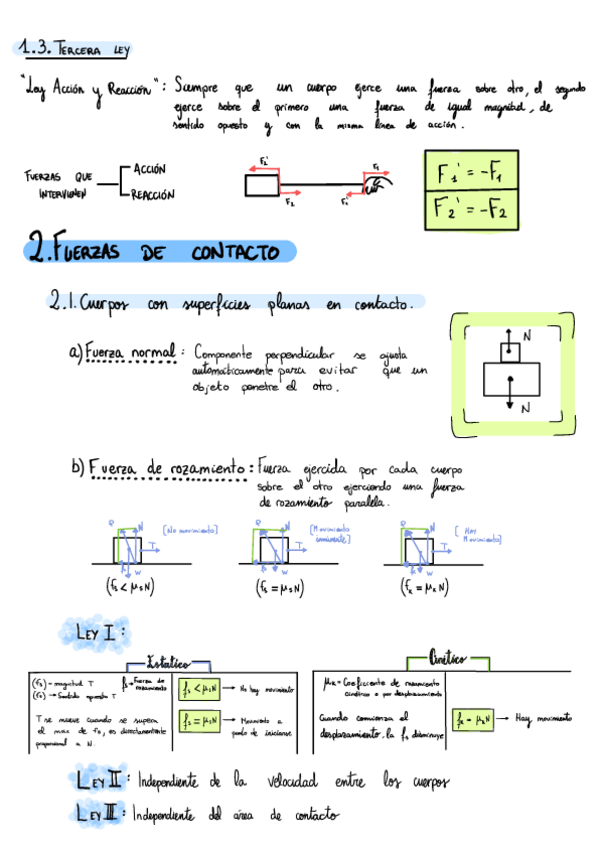 1.3. TERCERA LEY
"Ley Acción y Reacción": Siempre que un cuerpo ejerce una fuerza sobre otro, el segundo
ejerce sobre el primero una fuerza de igual magnitud, de
sentido opuesto y con la misma línea de acción.
FUERZAS QUE
INTERVIENEN
ACCIÓN
REACCIÓN
F₂'
F₂
F₁
F₁'
F₁' = -F₁
F₂' = -F₂
2. FUERZAS DE CONTACTO
2.1. Cuerpos con superficies planas en contacto.
a) Fuerza normal: Componente perpendicular se ajusta
automáticamente para evitar que un
objeto penetre el otro.
N
N
b) Fuerza de rozamiento: Fuerza ejercida por cada cuerpo
sobre el otro ejerciendo una fuerza
de rozamiento paralela.
R N [No movimiento]
T
W
(fs < μsN)
R N [Movimiento
inminente]
T
W
(fs = μsN)
R N [Hay
Movimiento]
T
W
(fk = μkN)
LEY I:
Estático
(fs) - magnitud T
(fs) → Sentido opuesto T
fs → Fuerza de
rozamiento
T se mueve cuando se supera
el max de fs, es directamente
proporcional a N.
fs < μsN → No hay movimiento
fs = μsN → Movimiento a
punto de iniciarse
Cinético
μk = Coeficiente de rozamiento
cinético o por desplazamiento
Cuando comienza el
desplazamiento, la fs disminuye
fk = μkN → Hay movimiento
LEY II: Independiente de la velocidad entre los cuerpos
LEY III: Independiente del área de contacto